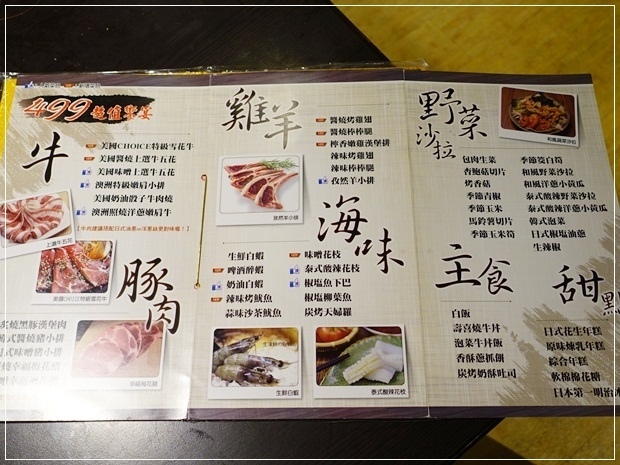 499超值饗宴
牛
美國CHOICE特級雪花牛
美國醬燒上選牛五花
美國味噌上選牛五花
澳洲特級嫩肩小排
美國奶油骰子牛肉燒
澳洲照燒洋蔥嫩肩牛
上選牛五花
美國CHOICE特級雪花牛
豚肉
炙燒黑豚漢堡肉
式醬燒豬小排
式味噌豬小排
幸福梅花豬
雞羊
醬燒烤雞翅
醬燒棒棒腿
檸香嫩雞漢堡排
辣味烤雞翅
辣味棒棒腿
孜然羊小排
孜然羊小排
海味
生鮮白蝦
啤酒醉蝦
奶油白蝦
辣味烤魷魚
蒜味沙茶魷魚
味噌花枝
泰式酸辣花枝
椒塩魚下巴
椒塩柳葉魚
炭烤天婦羅
生鮮白蝦
泰式酸辣花枝
野菜
沙拉
包肉生菜
杏鮑菇切片
烤香菇
季節青椒
季節玉米
馬鈴薯切片
季節玉米筍
季節筊白筍
和風野菜沙拉
和風洋蔥小黃瓜
泰式酸辣野菜沙拉
泰式酸辣洋蔥小黃瓜
韓式泡菜
日式椒塩油蔥
生辣椒
和風蔬菜沙拉
主食
白飯
壽喜燒牛丼
泡菜牛丼飯
香酥蔥抓餅
炭烤奶酥吐司
甜點
日式花生年糕
原味煉乳年糕
綜合年糕
軟棉棉花糖
日本第一明治冰